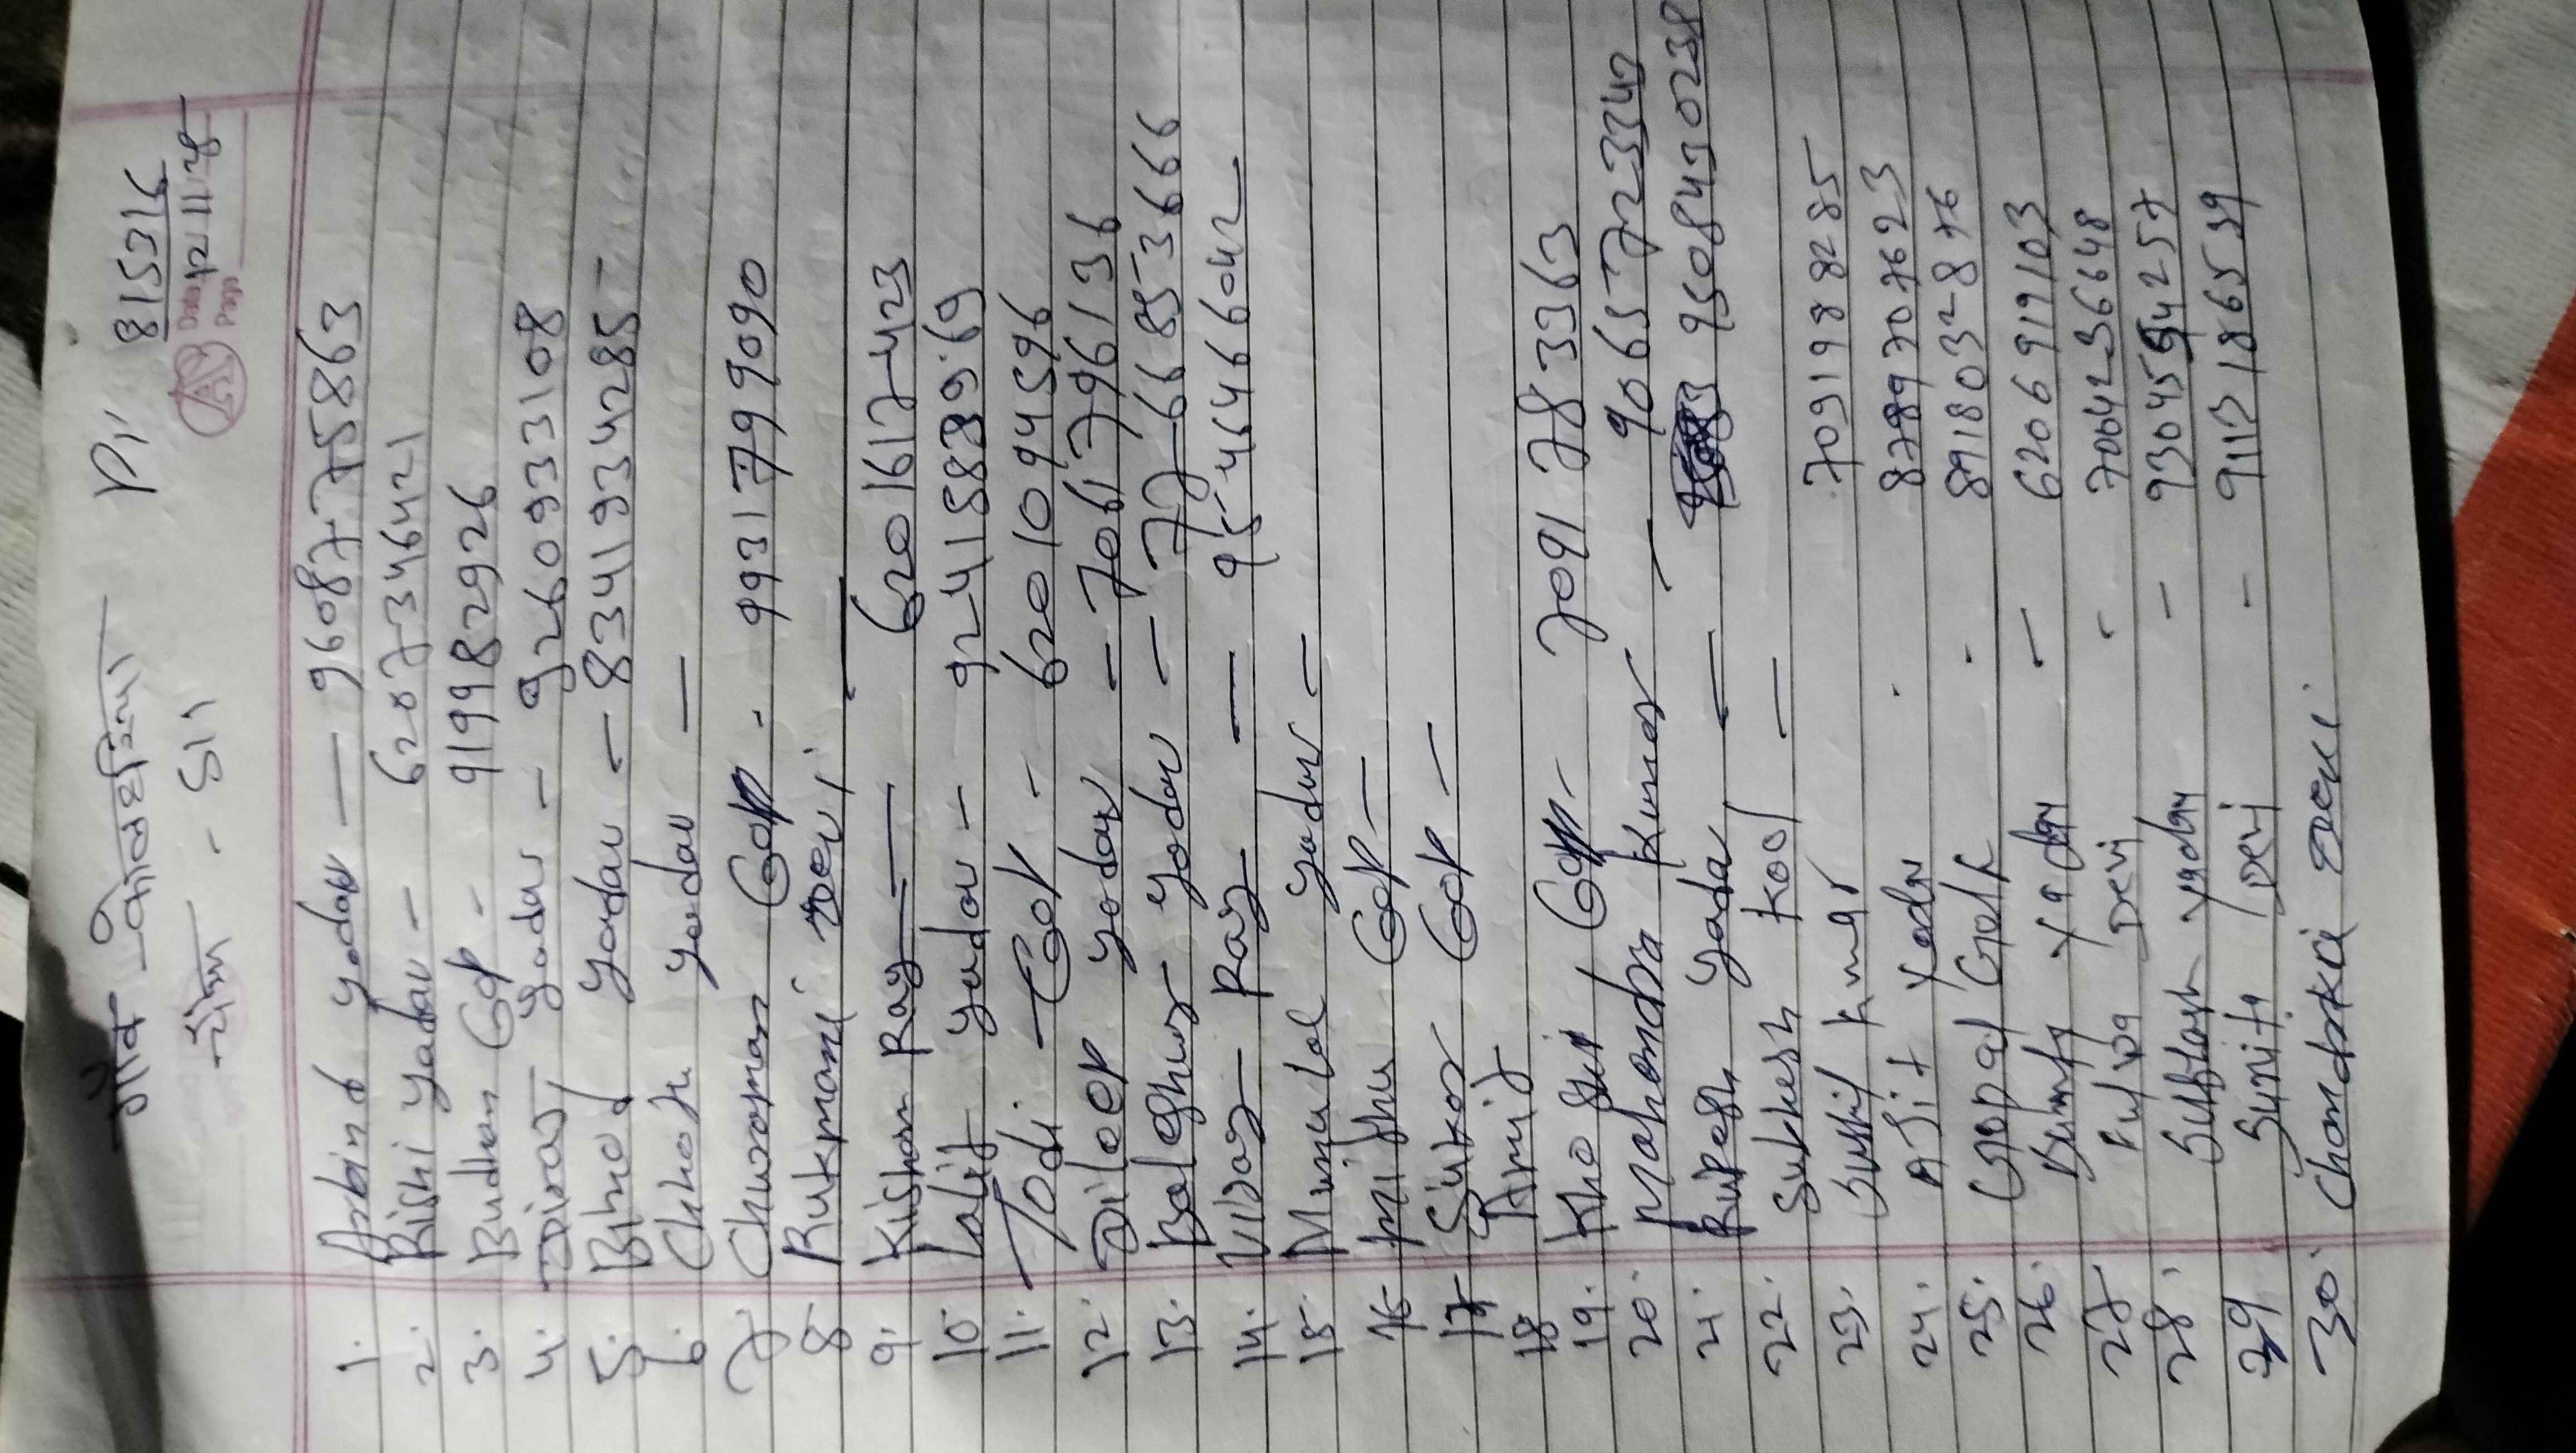 गाँव - कोलहरिया
Pi' 815316
Date 12/11/25
Page
पो० - 511
1. Arbind yadav — 9608775863
2. Bishi yadav - 6207346421
3. Budhan Gop - 919982926
4. Divas yadav - 9260933108
5. Binod yadav - 8341934285
6. Chhotu yadav —
7. Churaman Gop - 9931799090
8. Rukmani Devi
9. Kishan Ray — 6201617423
10. Lalit yadav - 9241583969
11. Todi Gop - 6201094596
12. Dileep yadav - 70617796136
13. Baleshwar yadav - 7766853666
14. Ray — 9546466042
15. Munna Lal yadav -
16. Mithu Gop -
17. Sukar Gop -
18. Amit
19. Gop - 7091783363
20. Mahendra Kumar - 9065723342
21. Rupesh yadav — 9508430238
22. Sukhesh Kool —
23. Sushil Kumar 7091988285
24. Ajit Yadav - 8789707623
25. Gopal Gop - 8918032876
26. Yadav - 6206919103
27. Fulwa Devi - 7004236648
28. Subhash Yadav - 9304554257
29 Sunita Devi - 9112186539
30. Chandrika Devi.